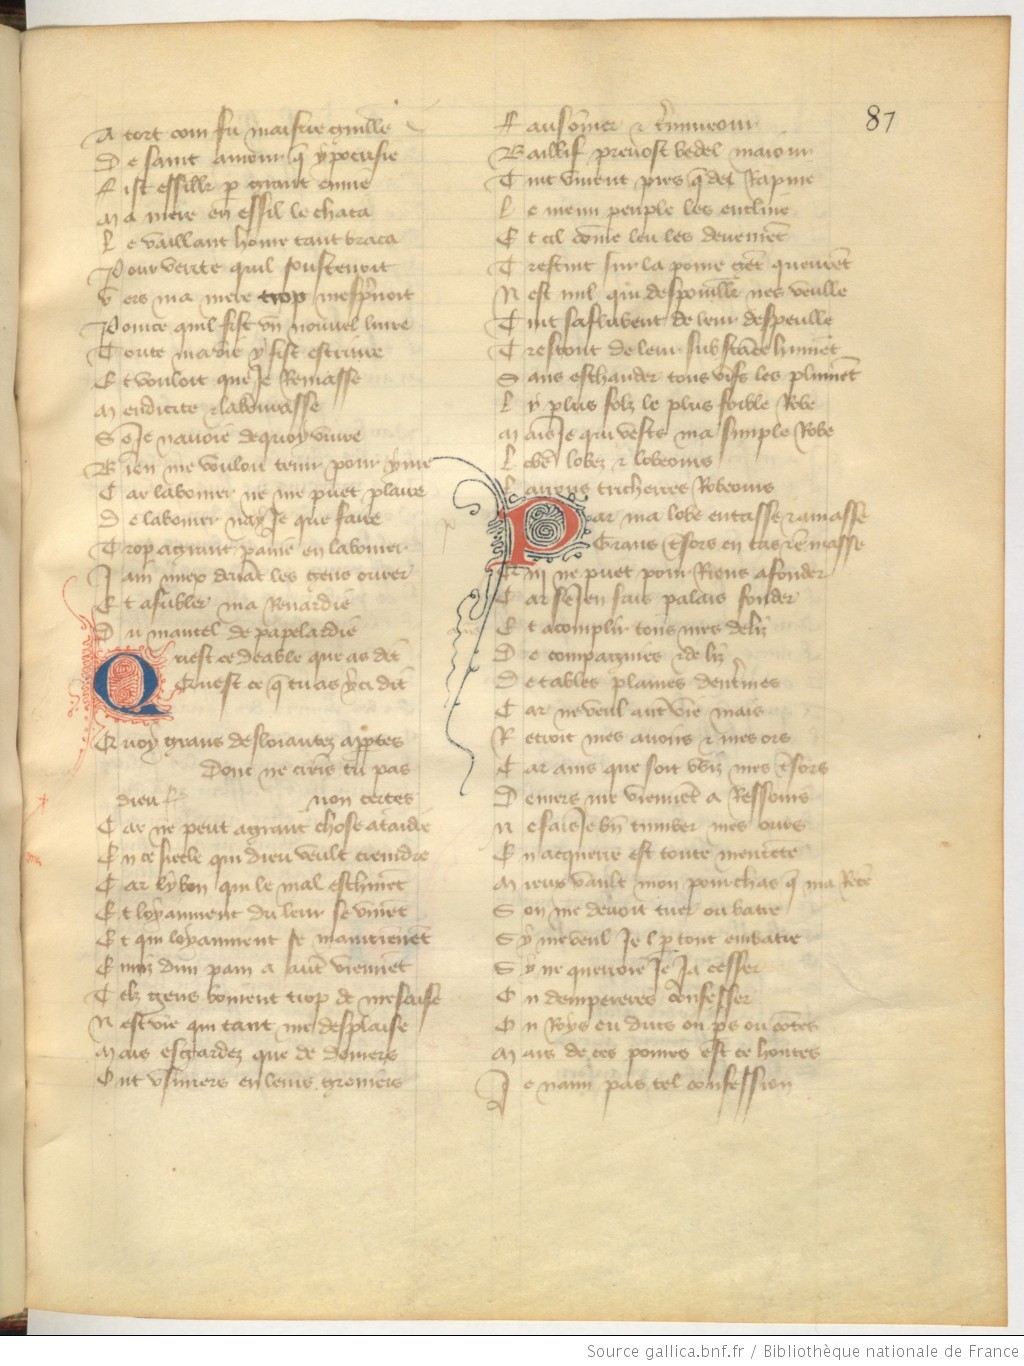 87
A tort com fu maistre guille
De saint amour q̄ ypocrisie
Fist essillr p grant enuie
Ma mere en essil le chaca
Le vaillant home tant braca
Pour verite quil soustenoit
Vers ma mere trop mesprnoit
Pource quil fist vn nouuel liure
Toute ma vie y fist escriure
Et vouloit que Je Reniasse
Mendicite & labourasse
Se Je nauoie de quoy viure
Bien me vouloit tenir pour yure
Car labourer ne me puet plaire
De labourer nay Je que faire
Trop a grant paine en labourer
Jaim miex deuāt les gens ourer
Et afubler ma Renardie
Du mantel de papelardie
Quest ce deable que as dit
Quest ce q̄ tu as yci dit
Quoy grans desloiautez appertes
Donc ne criens tu pas
dieu non certes
Car ne peut a grant chose ataindre
En ce siecle qui dieu veult creindre
Car ly bon qui le mal eschiuēt
Et loyaument du leur se viuēt
Et qui loyaument se maintienēt
Enuiz dun pain a autr viennēt
Telz gens boiuent trop de mesaise
Nest vie qui tant me desplaise
Mais esgardez que de deniers
Ont vsuriers en leurs greniers
Fausōnier & t̄mineour
Baillif preuost bedel maiour
Tuit viuent pres q̄ de Rapine
Le menu peuple les encline
Et cil cōme leu les deueurēt
Trestuit sur la poure gēt queurēt
Nest nul qui despouillr nes veulle
Tuit saflubent de leur despeulle
Trestout de leur substāce hument
Sans eschauder tous vifs les plumēt
Ly plus folz le plus foible Robe
Mais Je qui vests ma simple Robe
Lobē lobez & lobeours
Par ma lobe entasse & amasse
Grans t̄sors en tas & ē masse
Qui ne puet pour Riens afonder
Car se Jen fais palais fonder
Et acomplir tous mes deliz
De compagnies & de liz
De tables plaines dentmes
Car ne veul autr vie mais
Recroit mes auoirs & mes ors
Car ains que soit vuiz mes t̄sors
Deniers me viennēt a Ressours
Ne fais Je bn̄ tumber mes ours
En acquerre est toute mentēte
Mieus vault mon pourchas q̄ ma Rēte
Son me deuoit tuer ou batre
Sy me veul Je p tout embatre
Sy ne querroie Je Ja cesser
On dempereres cōfesser
On Roys ou ducs ou ps ou cōtes
Mais de ces poures est ce hontes
Je naim pas tel confession
Source gallica.bnf.fr / Bibliothèque nationale de France